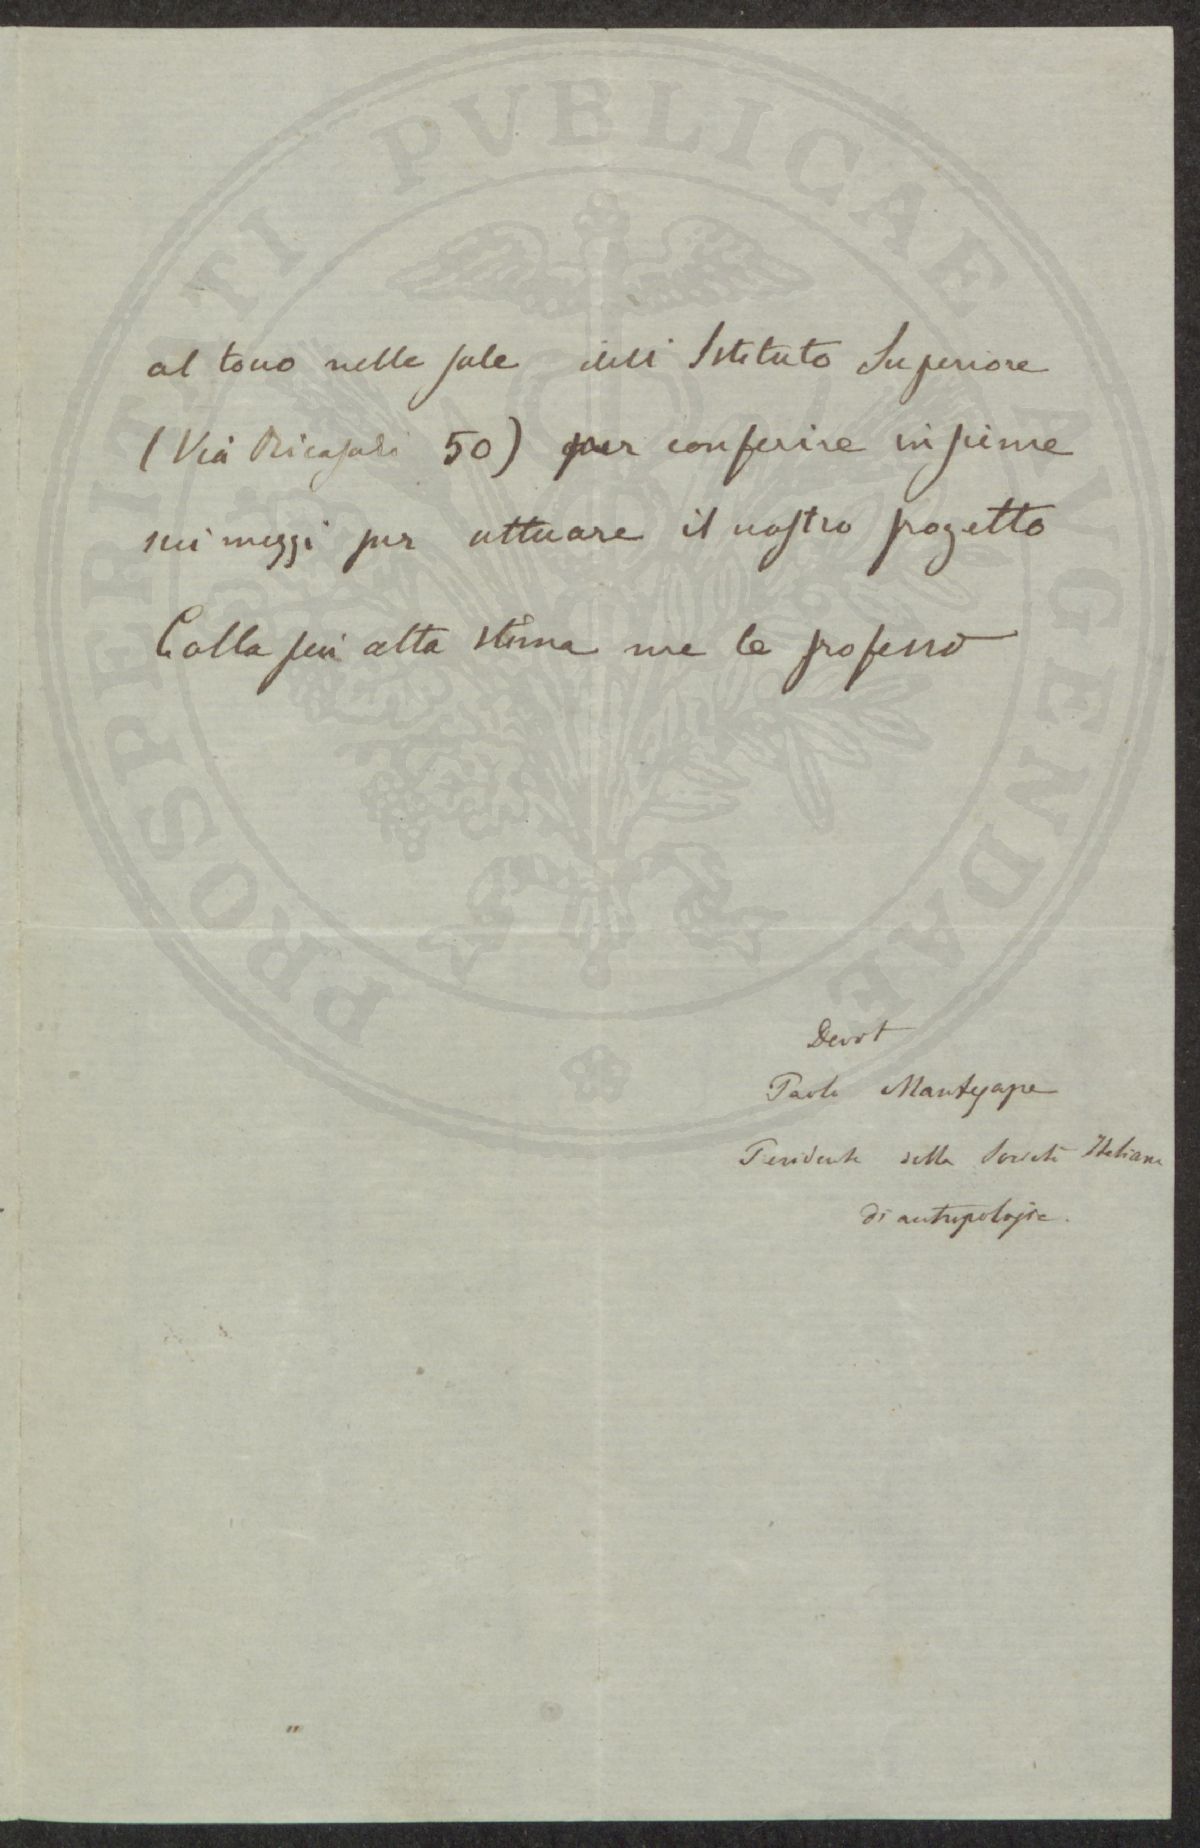 al tocco nelle sale dell'Istituto Superiore
(Via Ricasoli 50) per conferire insieme
sui mezzi per attuare il nostro progetto
Colla più alta stima me le professo
Devot
Paolo Mantegazza
Presidente della Società Italiana
di antropologia.
PROSPERITATI PVBLICAE AVGENDAE